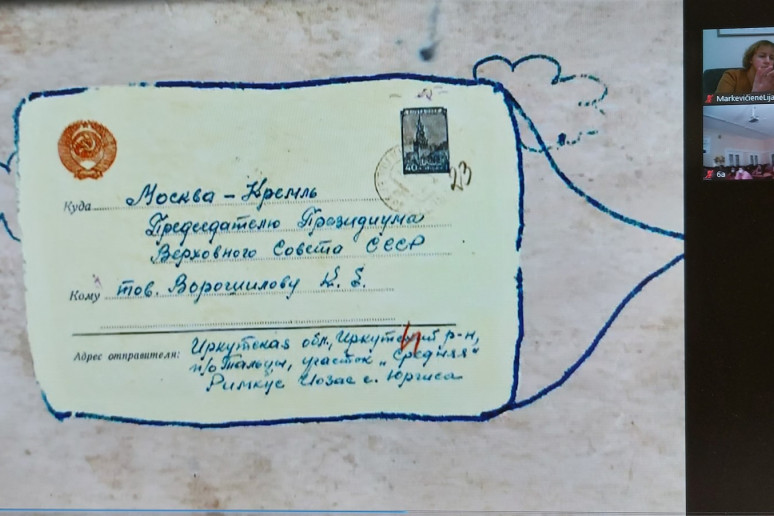 Куда Москва - Кремль
Председателю Президиума
Верховного Совета СССР
Кому тов. Ворошилову К. Е.
Адрес отправителя: Иркутская обл, Иркутский р-н,
п/о Тальцы, участок „Средняя"
Римкус Иозас с. Юргиса
40
23
MarkevičieneLija
6a